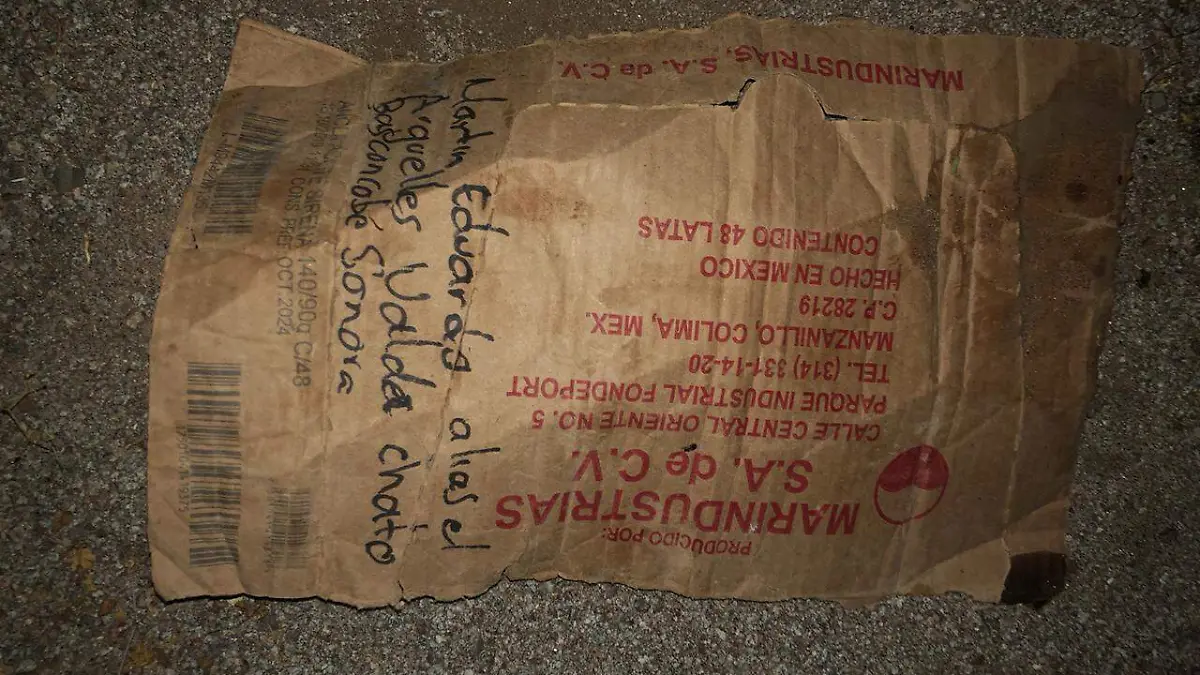 MARINDUSTRIAS, S.A. de C.V.
Martin Eduardo alias el
Arquelles Valdez chato
Sonora
140/90g C/48
OCT 2024
PRODUCIDO POR:
MARINDUSTRIAS
S.A. de C.V.
CALLE CENTRAL ORIENTE NO. 5
PARQUE INDUSTRIAL FONDEPORT
TEL. (314) 331-14-20
MANZANILLO, COLIMA, MEX.
C.P. 28219
HECHO EN MEXICO
CONTENIDO 48 LATAS